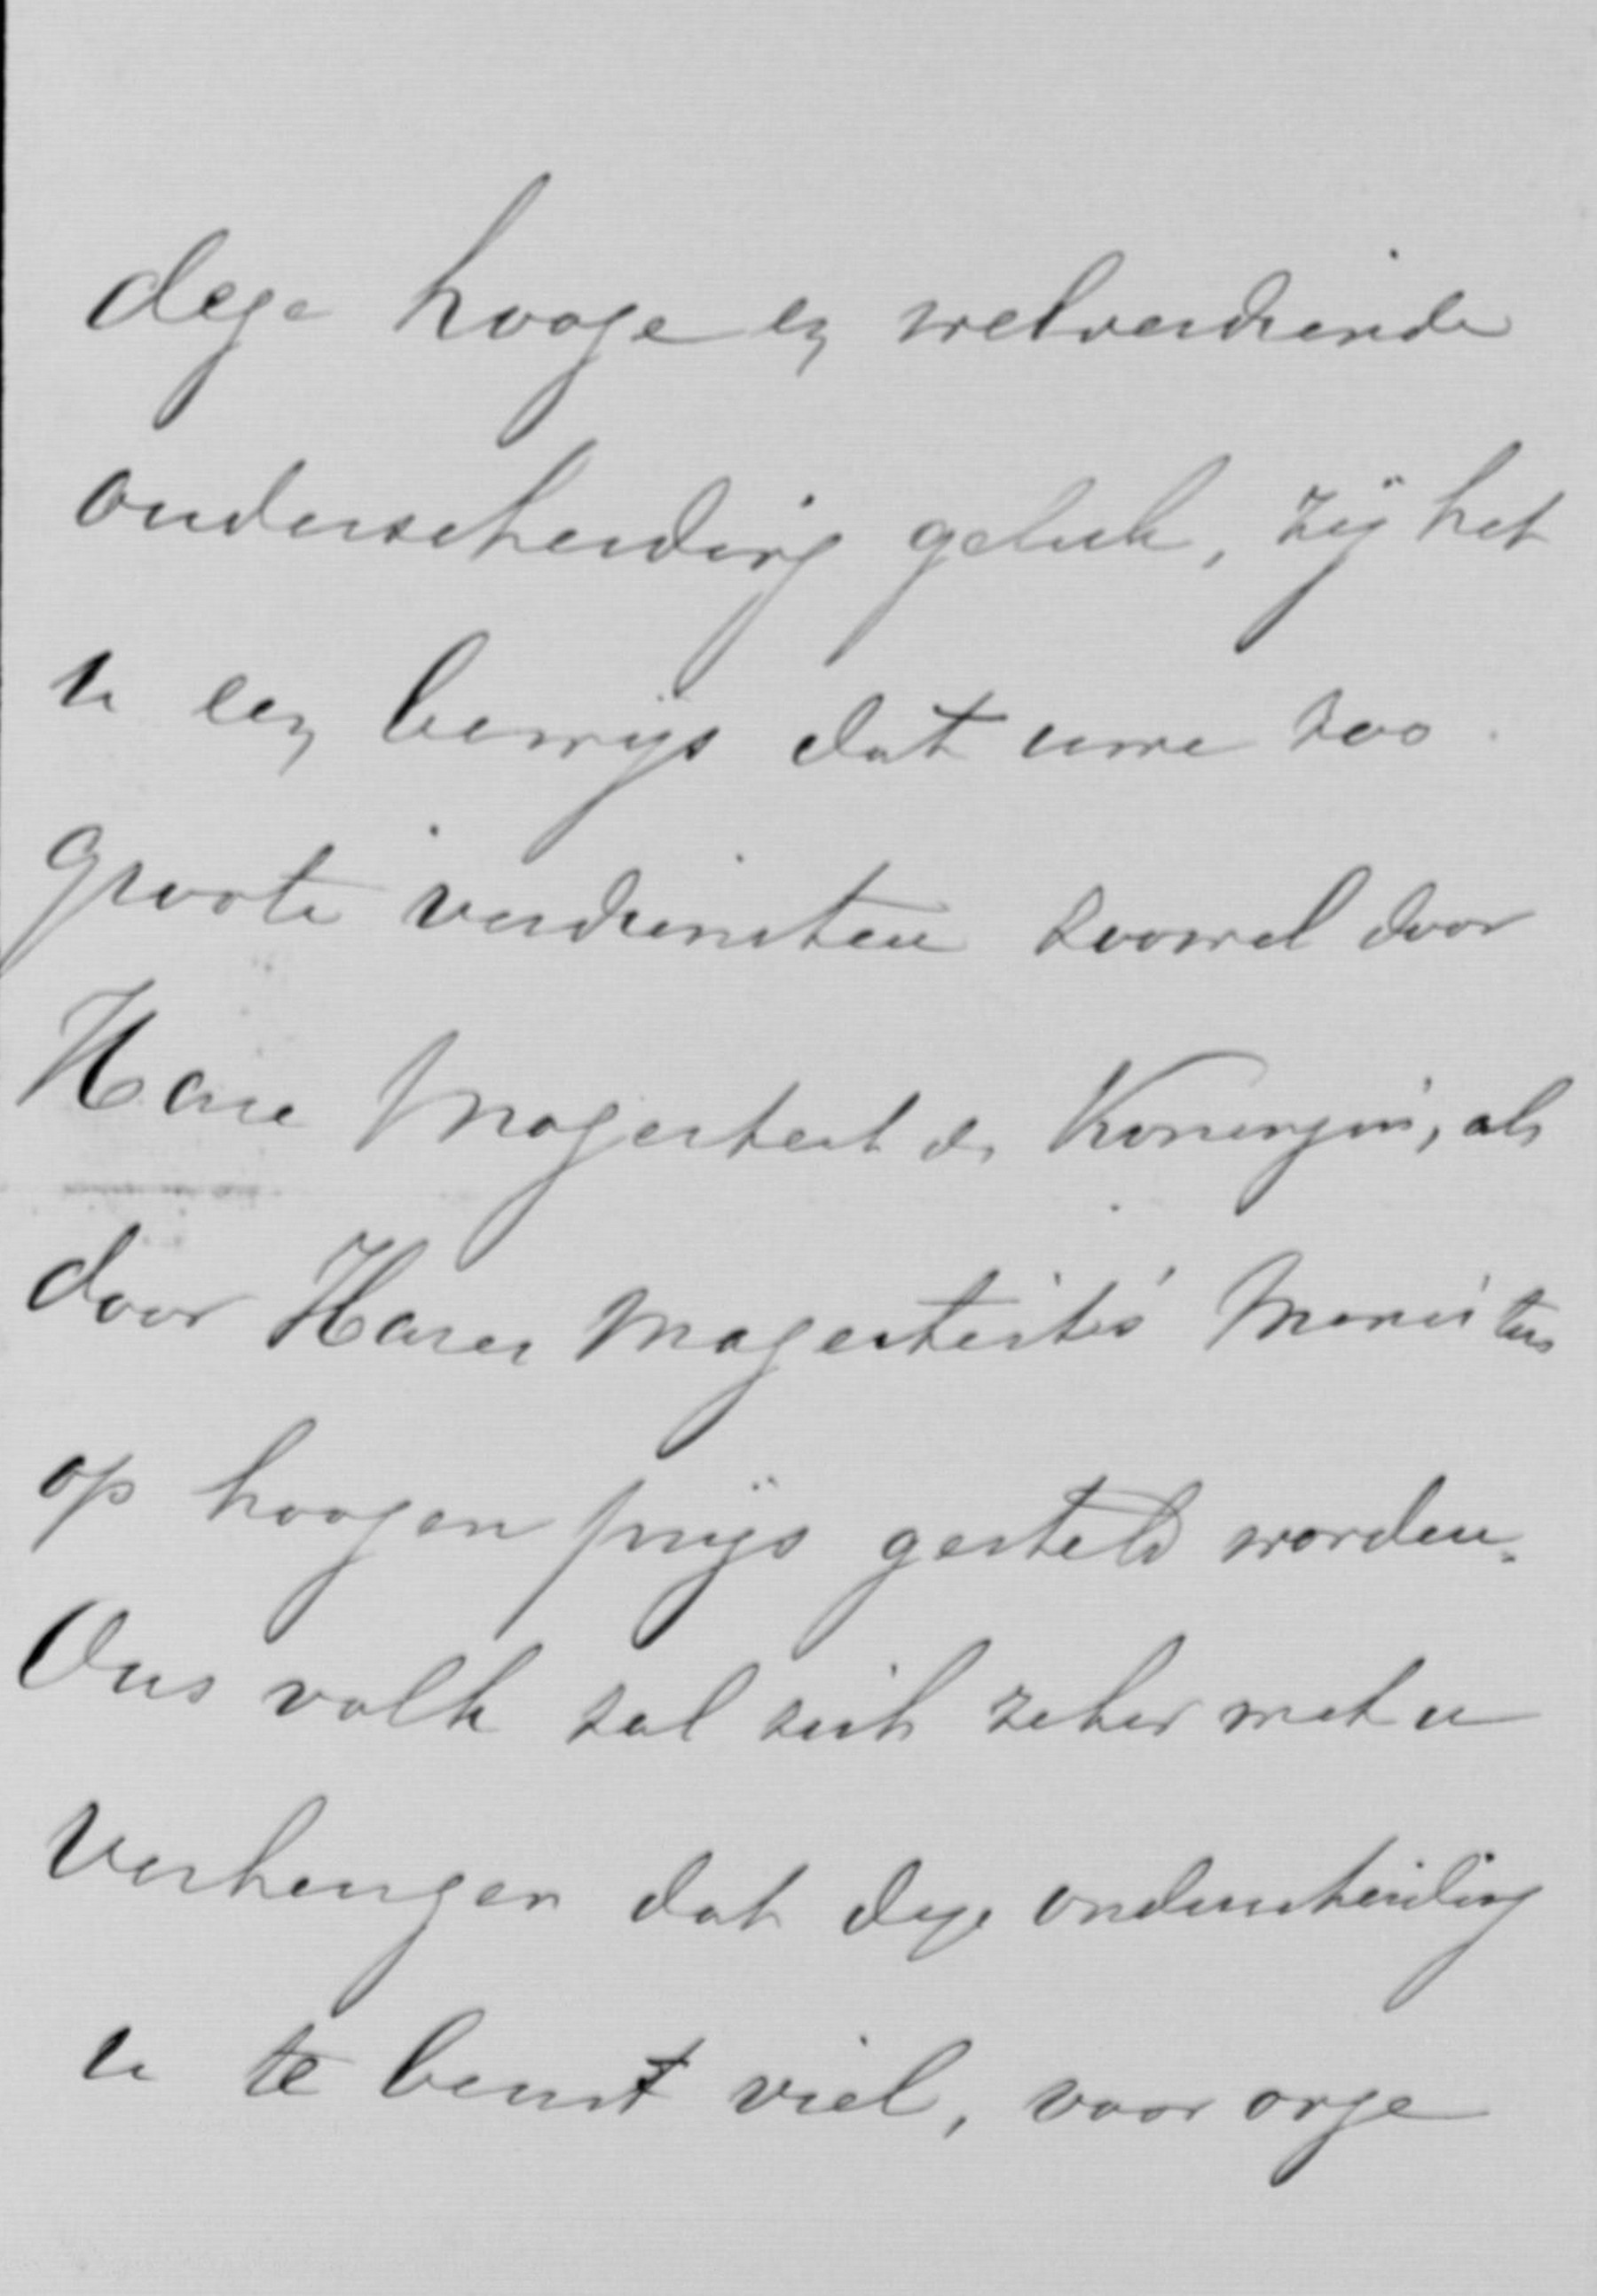 deze hooge en welverdiende
onderscheiding geluk, zij het
u een bewijs dat uwe zoo
groote verdiensten zoowel door
Hare Majesteit de Koningin, als
door Harer Majesteit's Ministers
op hoogen prijs gesteld worden.
Ons volk zal zich zeker met u
verheugen dat deze onderscheiding
u te beurt viel, voor onze